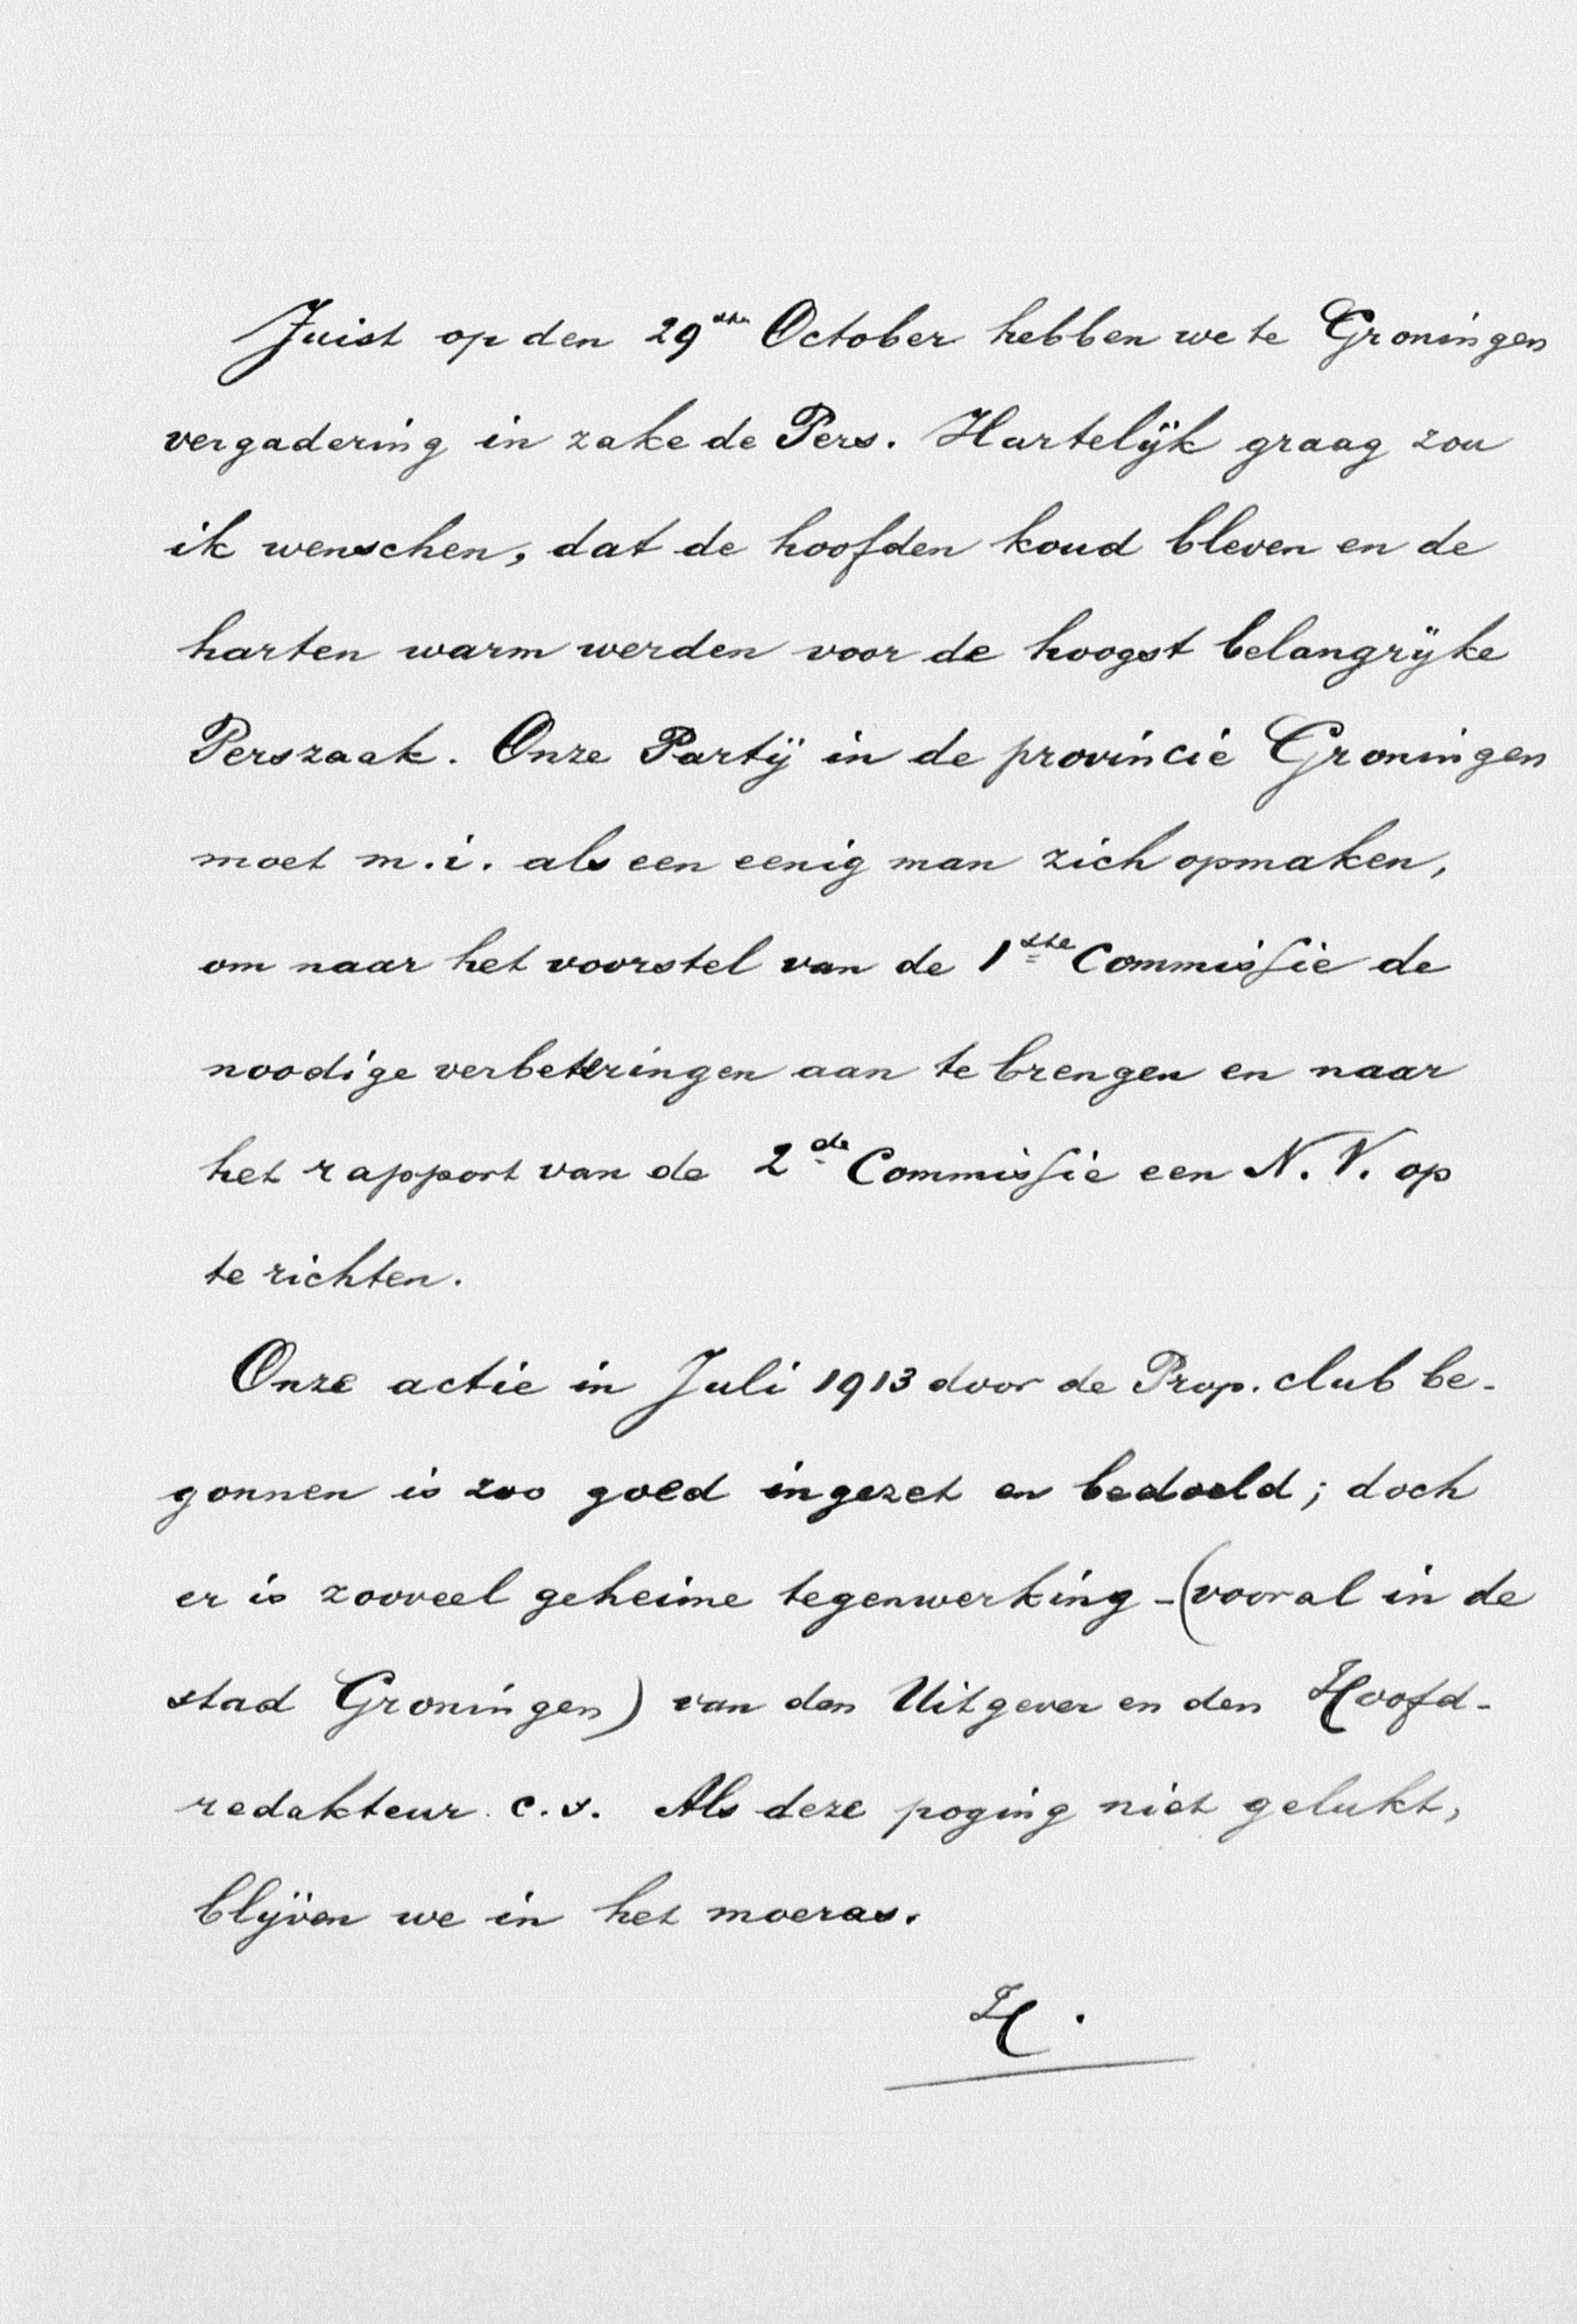 Juist op den 29sten October hebben we te Groningen
vergadering in zake de Pers. Hartelijk graag zou
ik wenschen, dat de hoofden koud bleven en de
harten warm werden voor de hoogst belangrijke
Perszaak. Onze Partij in de provincie Groningen
moet m.i. als een eenig man zich opmaken,
om naar het voorstel van de 1ste Commissie de
noodige verbeteringen aan te brengen en naar
het rapport van de 2de Commissie een N.V. op
te richten.
Onze actie in Juli 1913 door de Prop. club be-
gonnen is zoo goed ingezet en bedoeld; doch
er is zooveel geheime tegenwerking - (vooral in de
stad Groningen) van den Uitgever en den Hoofd-
redakteur c.s. Als deze poging niet gelukt,
blijven we in het moeras.
H.